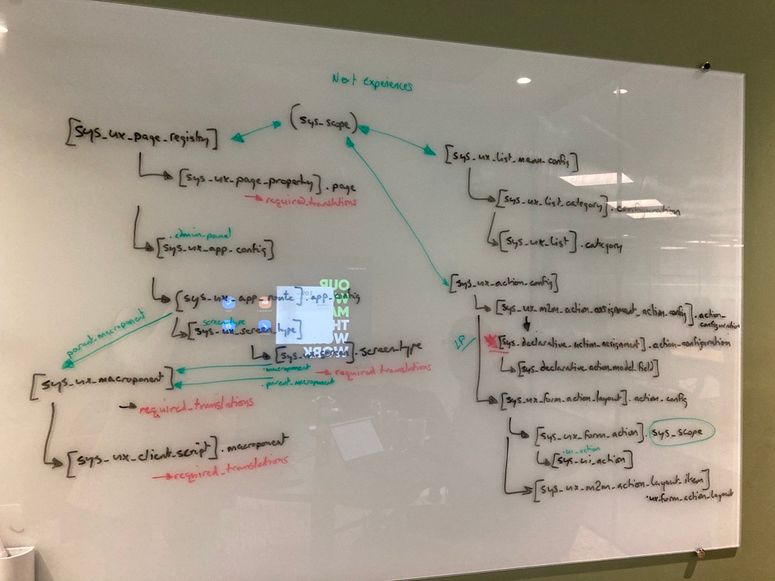 Next Experiences
(sys_scope)
[sys_ux_page_registry]
[sys_ux_page_property].page
required_translations
.admin_panel
[sys_ux_app_config]
[sys_ux_app_route].app_config
screen_type
[sys_ux_screen_type]
.screen_type
parent_macroponent
.macroponent
required translations
.parent_macroponent
[sys_ux_macroponent]
required_translations
[sys_ux_client_script].macroponent
required_translations
[sys_ux_list_menu_config]
[sys_ux_list_category].configuration
[sys_ux_list].category
[sys_ux_action_config]
[sys_ux_m2m_action_assignment_action_config].action_
configuration
[sys_declarative_action_assignment].action_configuration
[sys_declarative_action_model_field]
[sys_ux_form_action_layout].action_config
[sys_ux_form_action].sys_scope
.ui_action
[sys_ui_action]
[sys_ux_m2m_action_layout_item]
.ux_form_action_layout
OUR
HT
WORK